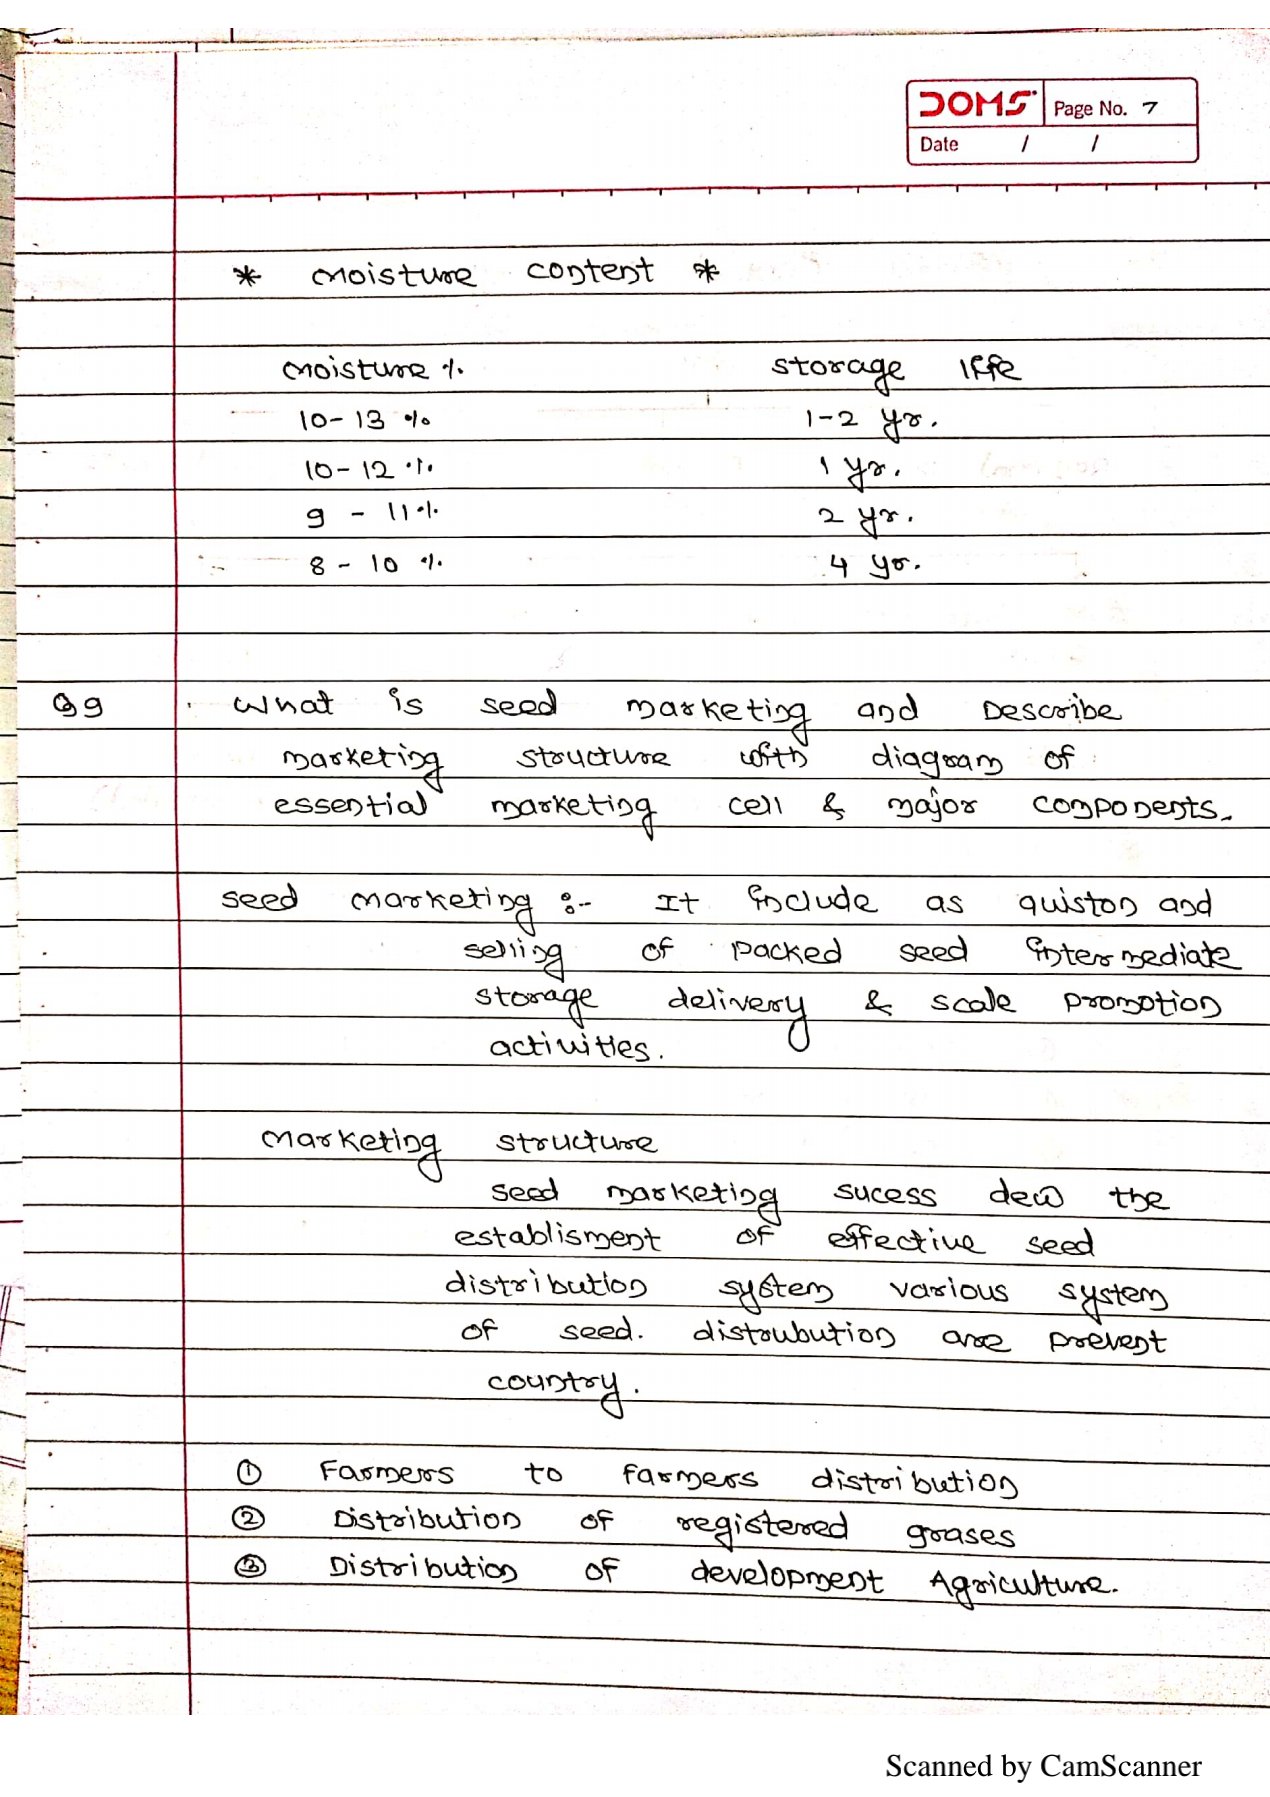 DOMS Page No. 7
Date / /
* Moisture content *
Moisture % storage life
10-13 % 1-2 yr.
10-12 % 1 yr.
9 - 11 % 2 yr.
8 - 10 % 4 yr.
Q9 What is seed marketing and Describe
marketing structure with diagram of
essential marketing cell & major components.
seed marketing :- It include as quiston and
selling of packed seed intermediate
storage delivery & scale promotion
activities.
Marketing structure
seed marketing sucess dew the
establisment of effective seed
distribution system various system
of seed. distrubution are prevent
country.
① Farmers to farmers distribution
② Distribution of registered grases
③ Distribution of development Agriculture.
Scanned by CamScanner